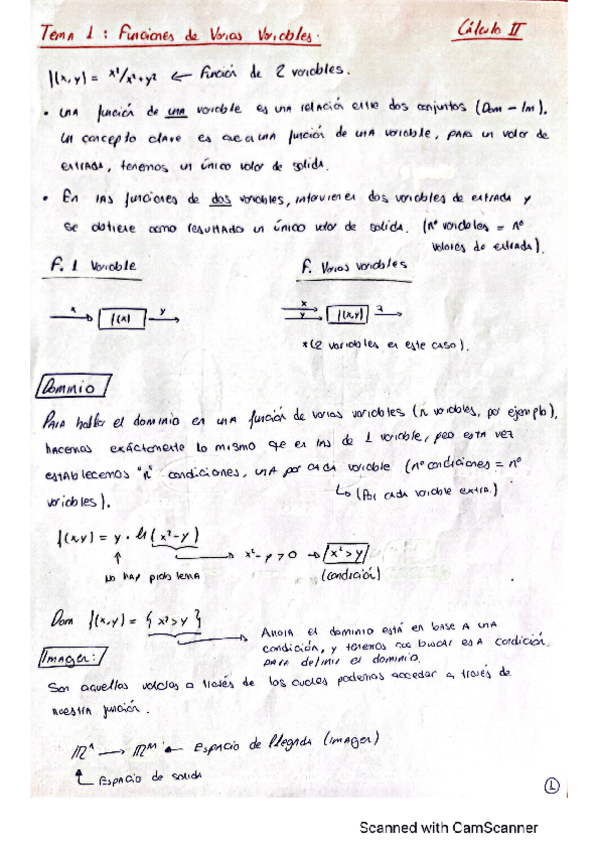 Tema 1: Funciones de Varias Variables.
Cálculo II
f(x,y) = x²/x²+y² ← Función de 2 variables.
• una función de una variable es una relación entre dos conjuntos (Dom - Im).
Un concepto clave es que a una función de una variable, para un valor de
entrada, tenemos un único valor de salida.
• En las funciones de dos variables, intervienen dos variables de entrada y
se obtiene como resultado un único valor de salida. (nº variables = nº
valores de entrada).
F. 1 Variable
F. Varias variables
x → f(x) → y
x y → f(x,y) → z
*(2 variables en este caso).
Dominio
Para hallar el dominio en una función de varias variables (n variables, por ejemplo),
hacemos exáctamente lo mismo que en las de 1 variable, pero esta vez
establecemos "n" condiciones, una por cada variable (nº condiciones = nº
variables).
↳ (Por cada variable extra.)
f(x,y) = y · ln(x²-y)
→ x²-y > 0 → x² > y
No hay problema
(condición)
Dom f(x,y) = { x² > y }
→ Ahora el dominio está en base a una
condición, y tenemos que buscar esa condición,
para definir el dominio.
Imagen:
Son aquellos valores a través de los cuales podemos acceder a través de
nuestra función.
ℝⁿ → ℝᵐ ← Espacio de llegada (imagen)
Espacio de salida
1
Scanned with CamScanner